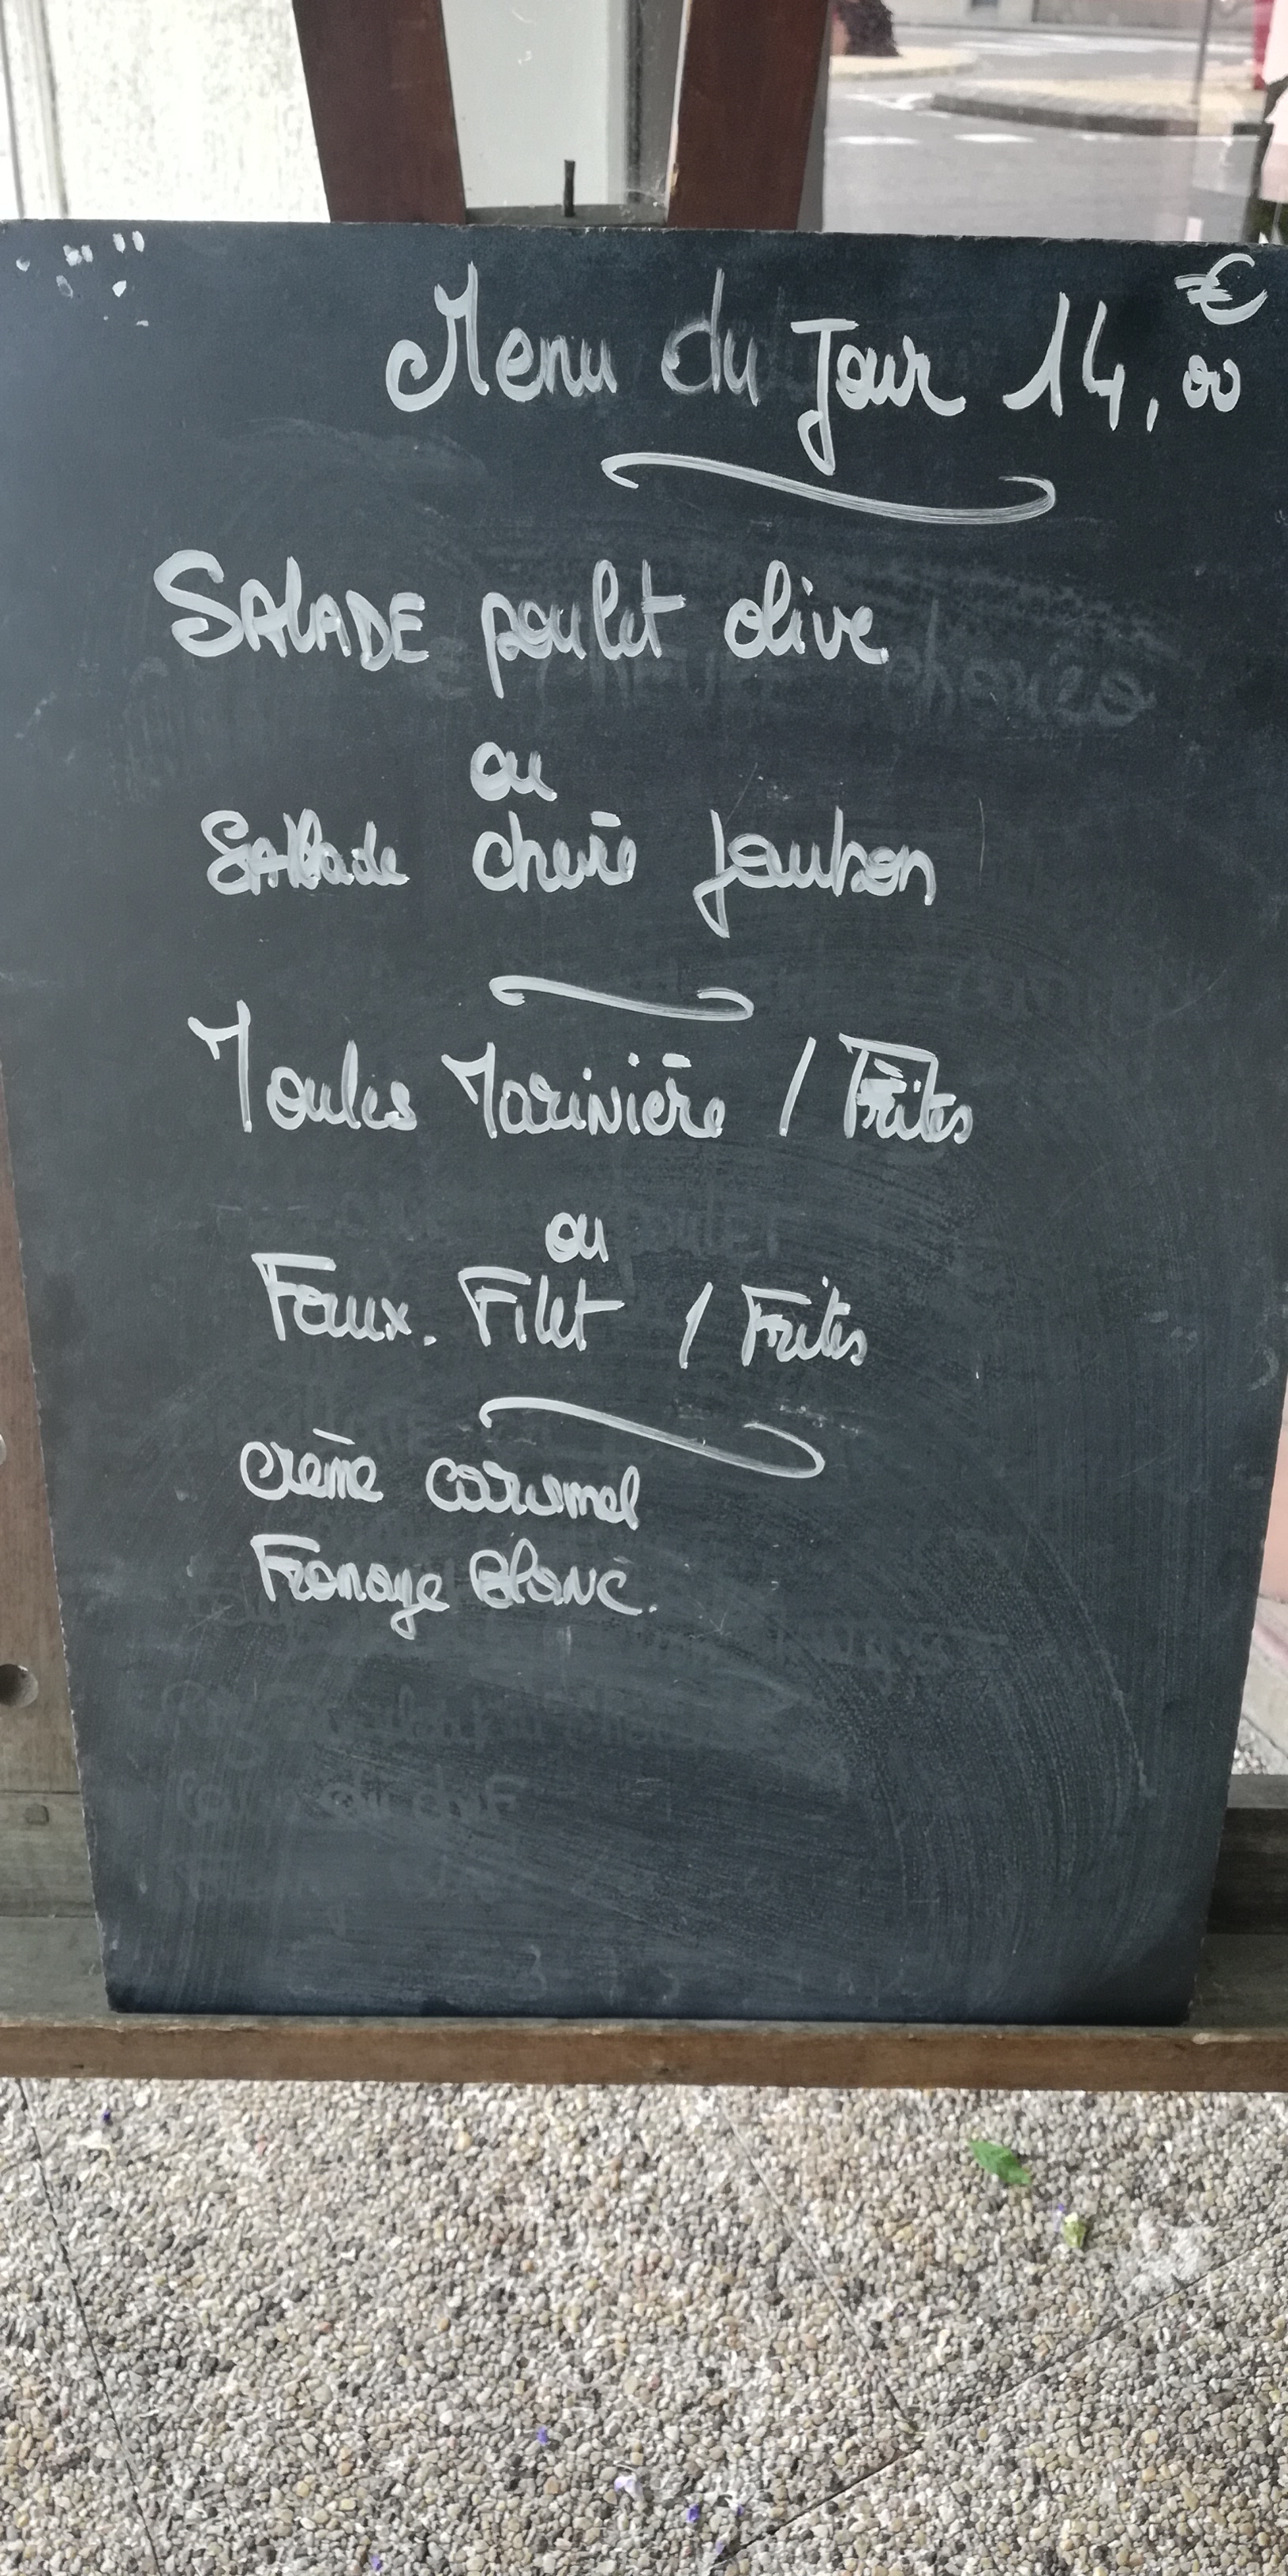 Menu du Jour 14,00 €
SALADE poulet olive
ou
Salade chèvre jambon
Moules Marinière / Frites
ou
Faux. Filet / Frites
crème caramel
Fromage Blanc.